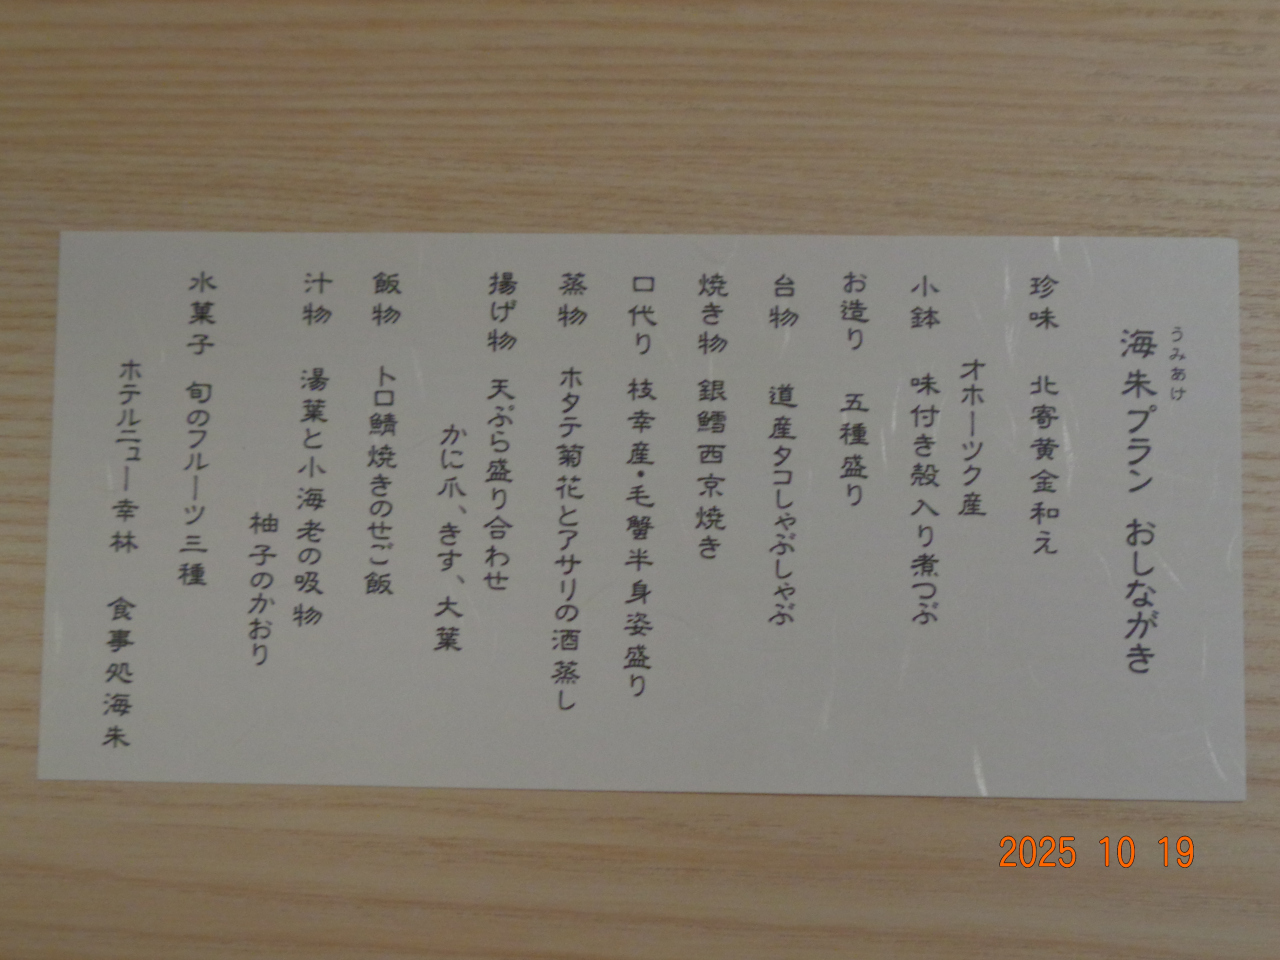 うみあけ
海朱プラン　おしながき
珍味　北寄黄金和え
オホーツク産
小鉢　味付き殻入り煮つぶ
お造り　五種盛り
台物　道産タコしゃぶしゃぶ
焼き物　銀鱈西京焼き
口代り　枝幸産・毛蟹半身姿盛り
蒸物　ホタテ菊花とアサリの酒蒸し
揚げ物　天ぷら盛り合わせ
かに爪、きす、大葉
飯物　トロ鯖焼きのせご飯
汁物　湯葉と小海老の吸物
柚子のかおり
水菓子　旬のフルーツ三種
ホテルニュー幸林　食事処海朱
2025 10 19